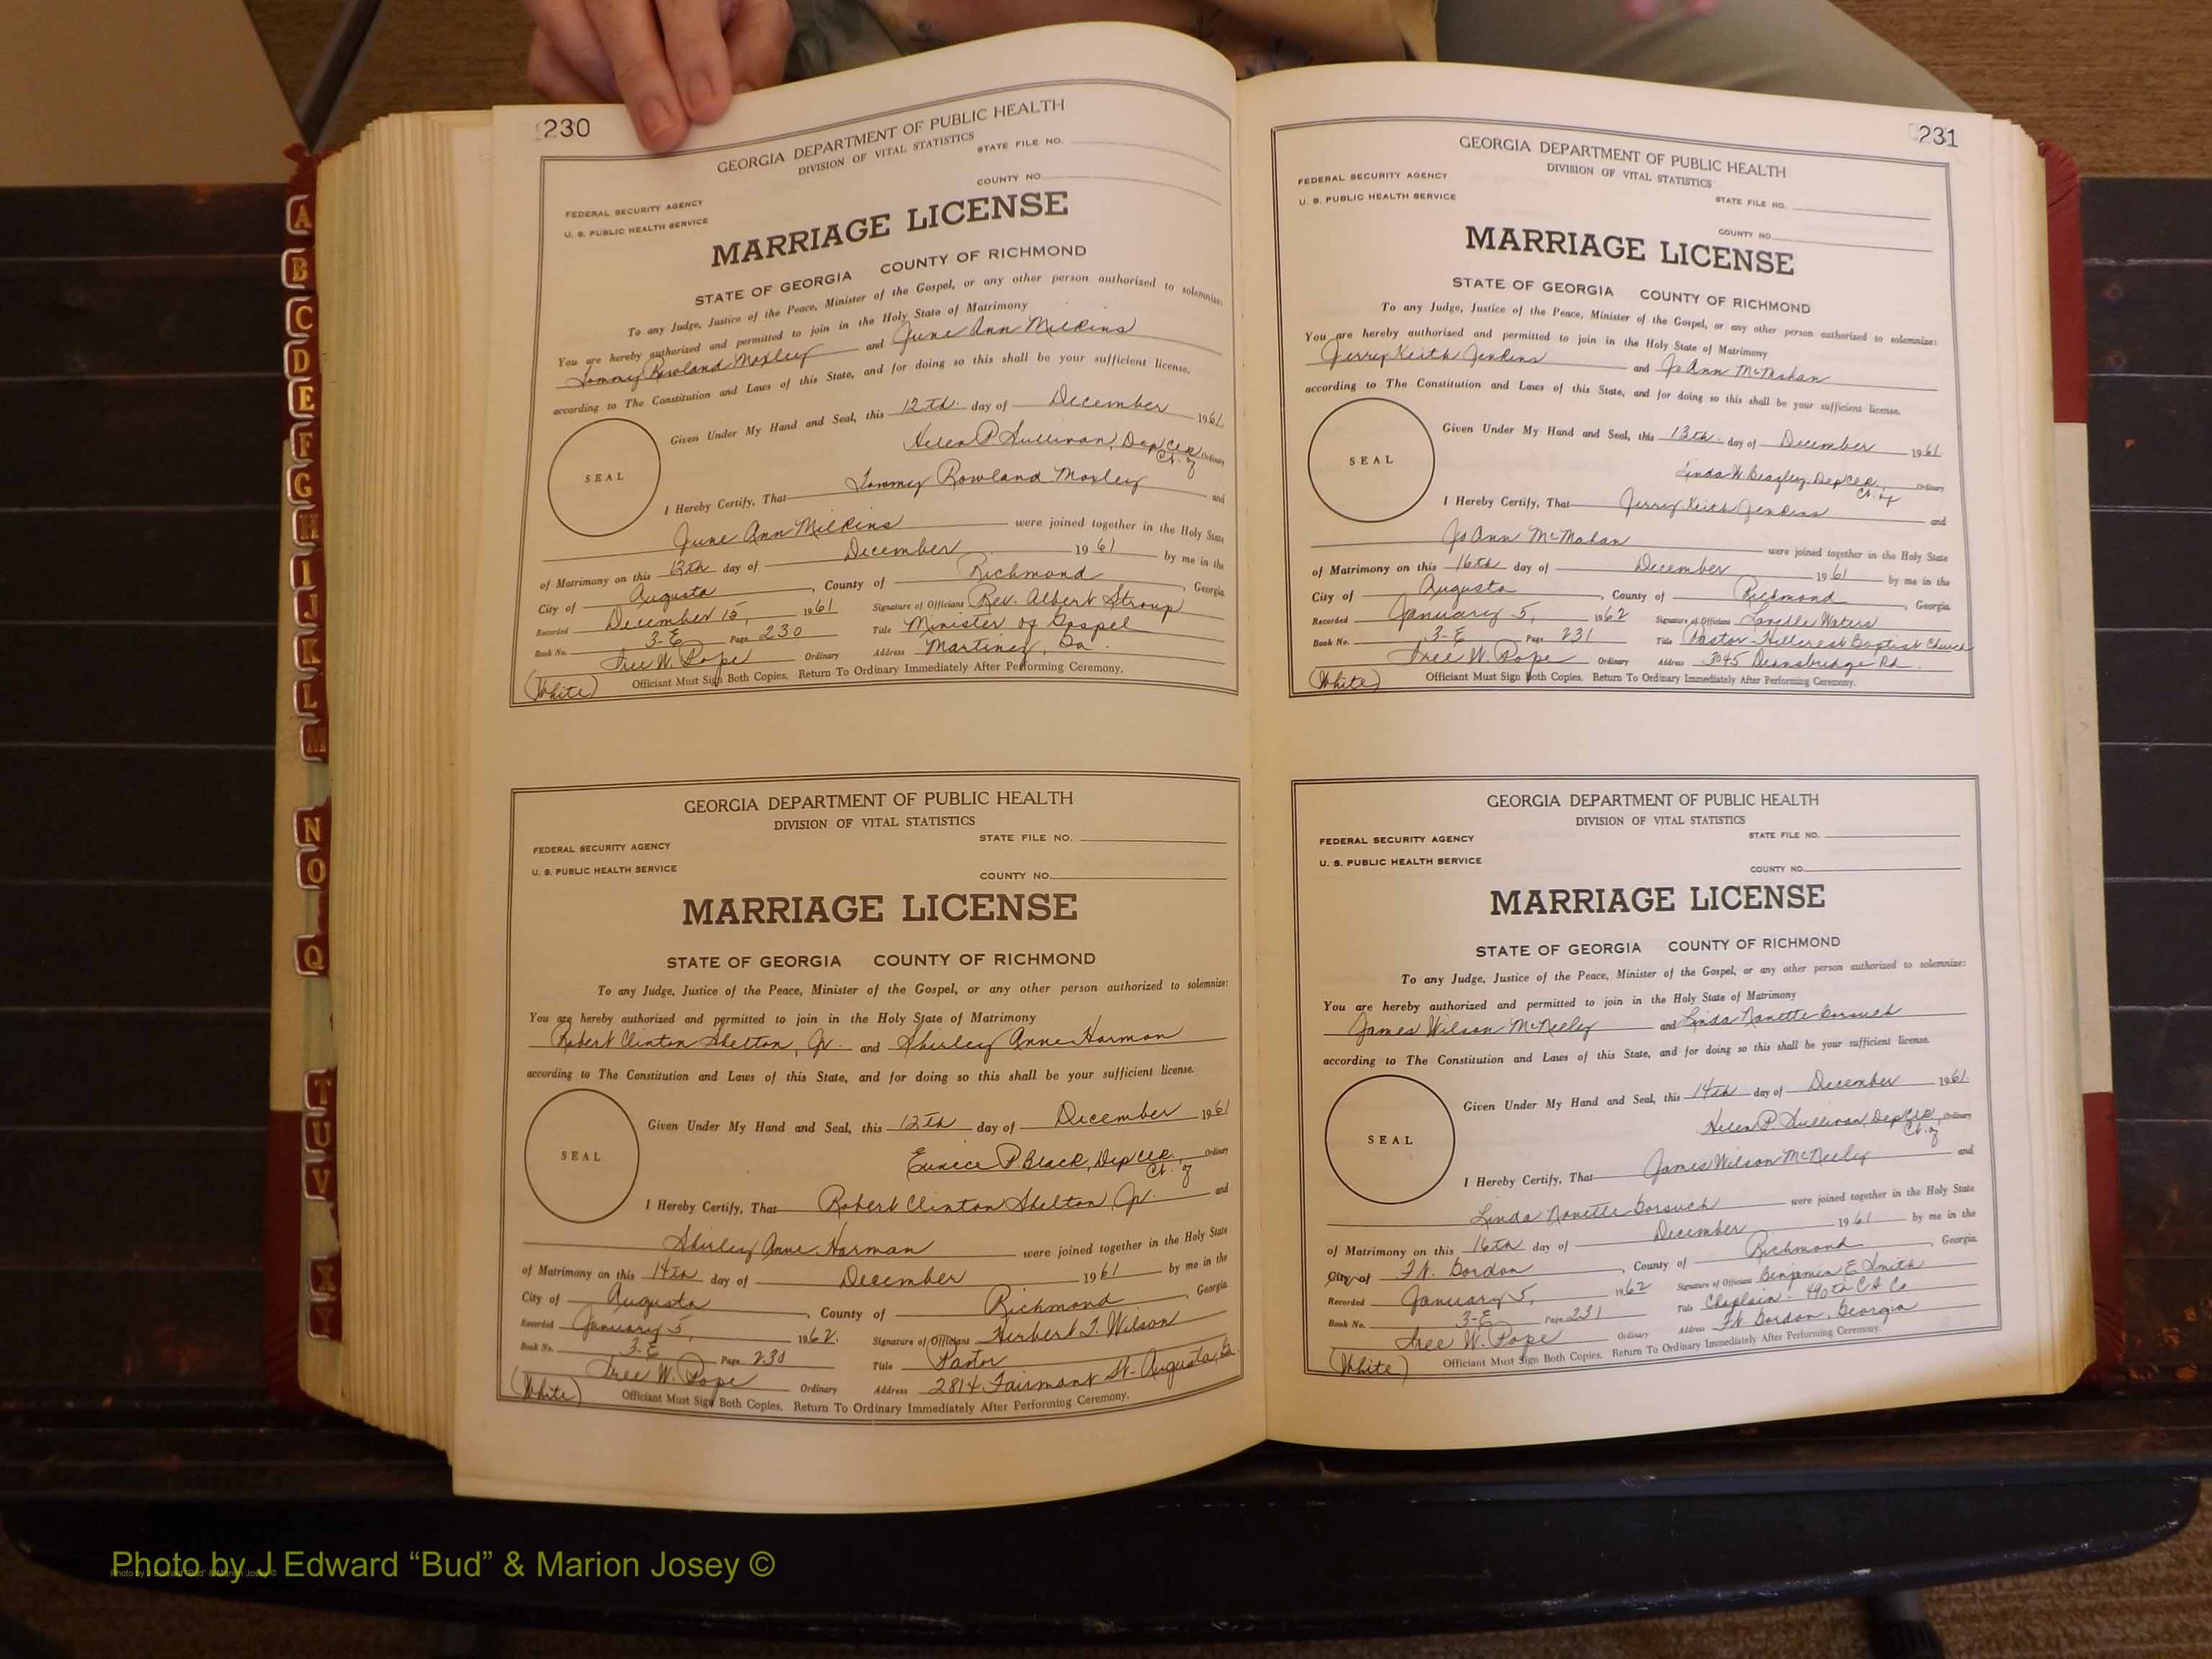 230
GEORGIA DEPARTMENT OF PUBLIC HEALTH
DIVISION OF VITAL STATISTICS
STATE FILE NO.
COUNTY NO.
FEDERAL SECURITY AGENCY
U. S. PUBLIC HEALTH SERVICE
MARRIAGE LICENSE
STATE OF GEORGIA COUNTY OF RICHMOND
To any Judge, Justice of the Peace, Minister of the Gospel, or any other person authorized to solemnize:
You are hereby authorized and permitted to join in the Holy State of Matrimony
Tommy Rowland Moxley and June Ann Milkins
according to The Constitution and Laws of this State, and for doing so this shall be your sufficient license.
Given Under My Hand and Seal, this 12th day of December 1961
Helen P. Sullivan, Dep Clk Ordinary
Ct. of
SEAL
I Hereby Certify, That Tommy Rowland Moxley and
June Ann Milkins were joined together in the Holy State
of Matrimony on this 12th day of December 1961 by me in the
City of Augusta, County of Richmond, Georgia
Recorded December 15, 1961 Signature of Officians Rev. Albert Stroup
Book No. 3-E Page 230 Title Minister of Gospel
Tree W. Pope Ordinary Address Martinez, Ga.
(White) Officiant Must Sign Both Copies. Return To Ordinary Immediately After Performing Ceremony.
GEORGIA DEPARTMENT OF PUBLIC HEALTH
DIVISION OF VITAL STATISTICS
STATE FILE NO.
FEDERAL SECURITY AGENCY
U. S. PUBLIC HEALTH SERVICE
COUNTY NO.
MARRIAGE LICENSE
STATE OF GEORGIA COUNTY OF RICHMOND
To any Judge, Justice of the Peace, Minister of the Gospel, or any other person authorized to solemnize:
You are hereby authorized and permitted to join in the Holy State of Matrimony
Robert Clinton Shelton, Jr. and Shirley Anne Harman
according to The Constitution and Laws of this State, and for doing so this shall be your sufficient license.
Given Under My Hand and Seal, this 12th day of December 1961
Eunice P. Black, Dep Clk, Ordinary
Ct. of
SEAL
I Hereby Certify, That Robert Clinton Shelton Jr. and
Shirley Anne Harman were joined together in the Holy State
of Matrimony on this 14th day of December 1961 by me in the
City of Augusta, County of Richmond, Georgia
Recorded January 5, 1962. Signature of Officians Herbert J. Wilson
Book No. 3-E Page 230 Title Pastor
Tree W. Pope Ordinary Address 2814 Fairmont St. Augusta, Ga.
(White) Officiant Must Sign Both Copies. Return To Ordinary Immediately After Performing Ceremony.
231
GEORGIA DEPARTMENT OF PUBLIC HEALTH
DIVISION OF VITAL STATISTICS
FEDERAL SECURITY AGENCY
U. S. PUBLIC HEALTH SERVICE
STATE FILE NO.
COUNTY NO.
MARRIAGE LICENSE
STATE OF GEORGIA COUNTY OF RICHMOND
To any Judge, Justice of the Peace, Minister of the Gospel, or any other person authorized to solemnize:
You are hereby authorized and permitted to join in the Holy State of Matrimony
Jerry Keith Jenkins and Jo Ann McMahan
according to The Constitution and Laws of this State, and for doing so this shall be your sufficient license.
Given Under My Hand and Seal, this 13th day of December 1961
Linda W. Beazley, Dep Clk, Ordinary
Ct. of
SEAL
I Hereby Certify, That Jerry Keith Jenkins and
Jo Ann McMahan were joined together in the Holy State
of Matrimony on this 16th day of December 1961 by me in the
City of Augusta, County of Richmond, Georgia
Recorded January 5, 1962 Signature of Officians Lavelle Waters
Book No. 3-E Page 231 Title Pastor - Hillcrest Baptist Church
Tree W. Pope Ordinary Address 3045 Deansbridge Rd.
(White) Officiant Must Sign Both Copies. Return To Ordinary Immediately After Performing Ceremony.
GEORGIA DEPARTMENT OF PUBLIC HEALTH
DIVISION OF VITAL STATISTICS
STATE FILE NO.
FEDERAL SECURITY AGENCY
U. S. PUBLIC HEALTH SERVICE
COUNTY NO.
MARRIAGE LICENSE
STATE OF GEORGIA COUNTY OF RICHMOND
To any Judge, Justice of the Peace, Minister of the Gospel, or any other person authorized to solemnize:
You are hereby authorized and permitted to join in the Holy State of Matrimony
James Wilson McNeely and Linda Nanette Gorsuch
according to The Constitution and Laws of this State, and for doing so this shall be your sufficient license.
Given Under My Hand and Seal, this 14th day of December 1961
Helen P. Sullivan, Dep Clk, Ordinary
Ct. of
SEAL
I Hereby Certify, That James Wilson McNeely and
Linda Nanette Gorsuch were joined together in the Holy State
of Matrimony on this 16th day of December 1961 by me in the
City of Ft. Gordon, County of Richmond, Georgia
Recorded January 5, 1962 Signature of Officians Benjamin E Smith
Book No. 3-E Page 231 Title Chaplain - CA Co
Tree W. Pope Ordinary Address Ft. Gordon, Georgia
(White) Officiant Must Sign Both Copies. Return To Ordinary Immediately After Performing Ceremony.
A
B
C
D
E
F
G
H
I
J
K
L
M
N
O
Q
T
U
V
X
Y
Photo by J Edward “Bud” & Marion Josey ©
Photo by J Edward “Bud” & Marion Josey ©